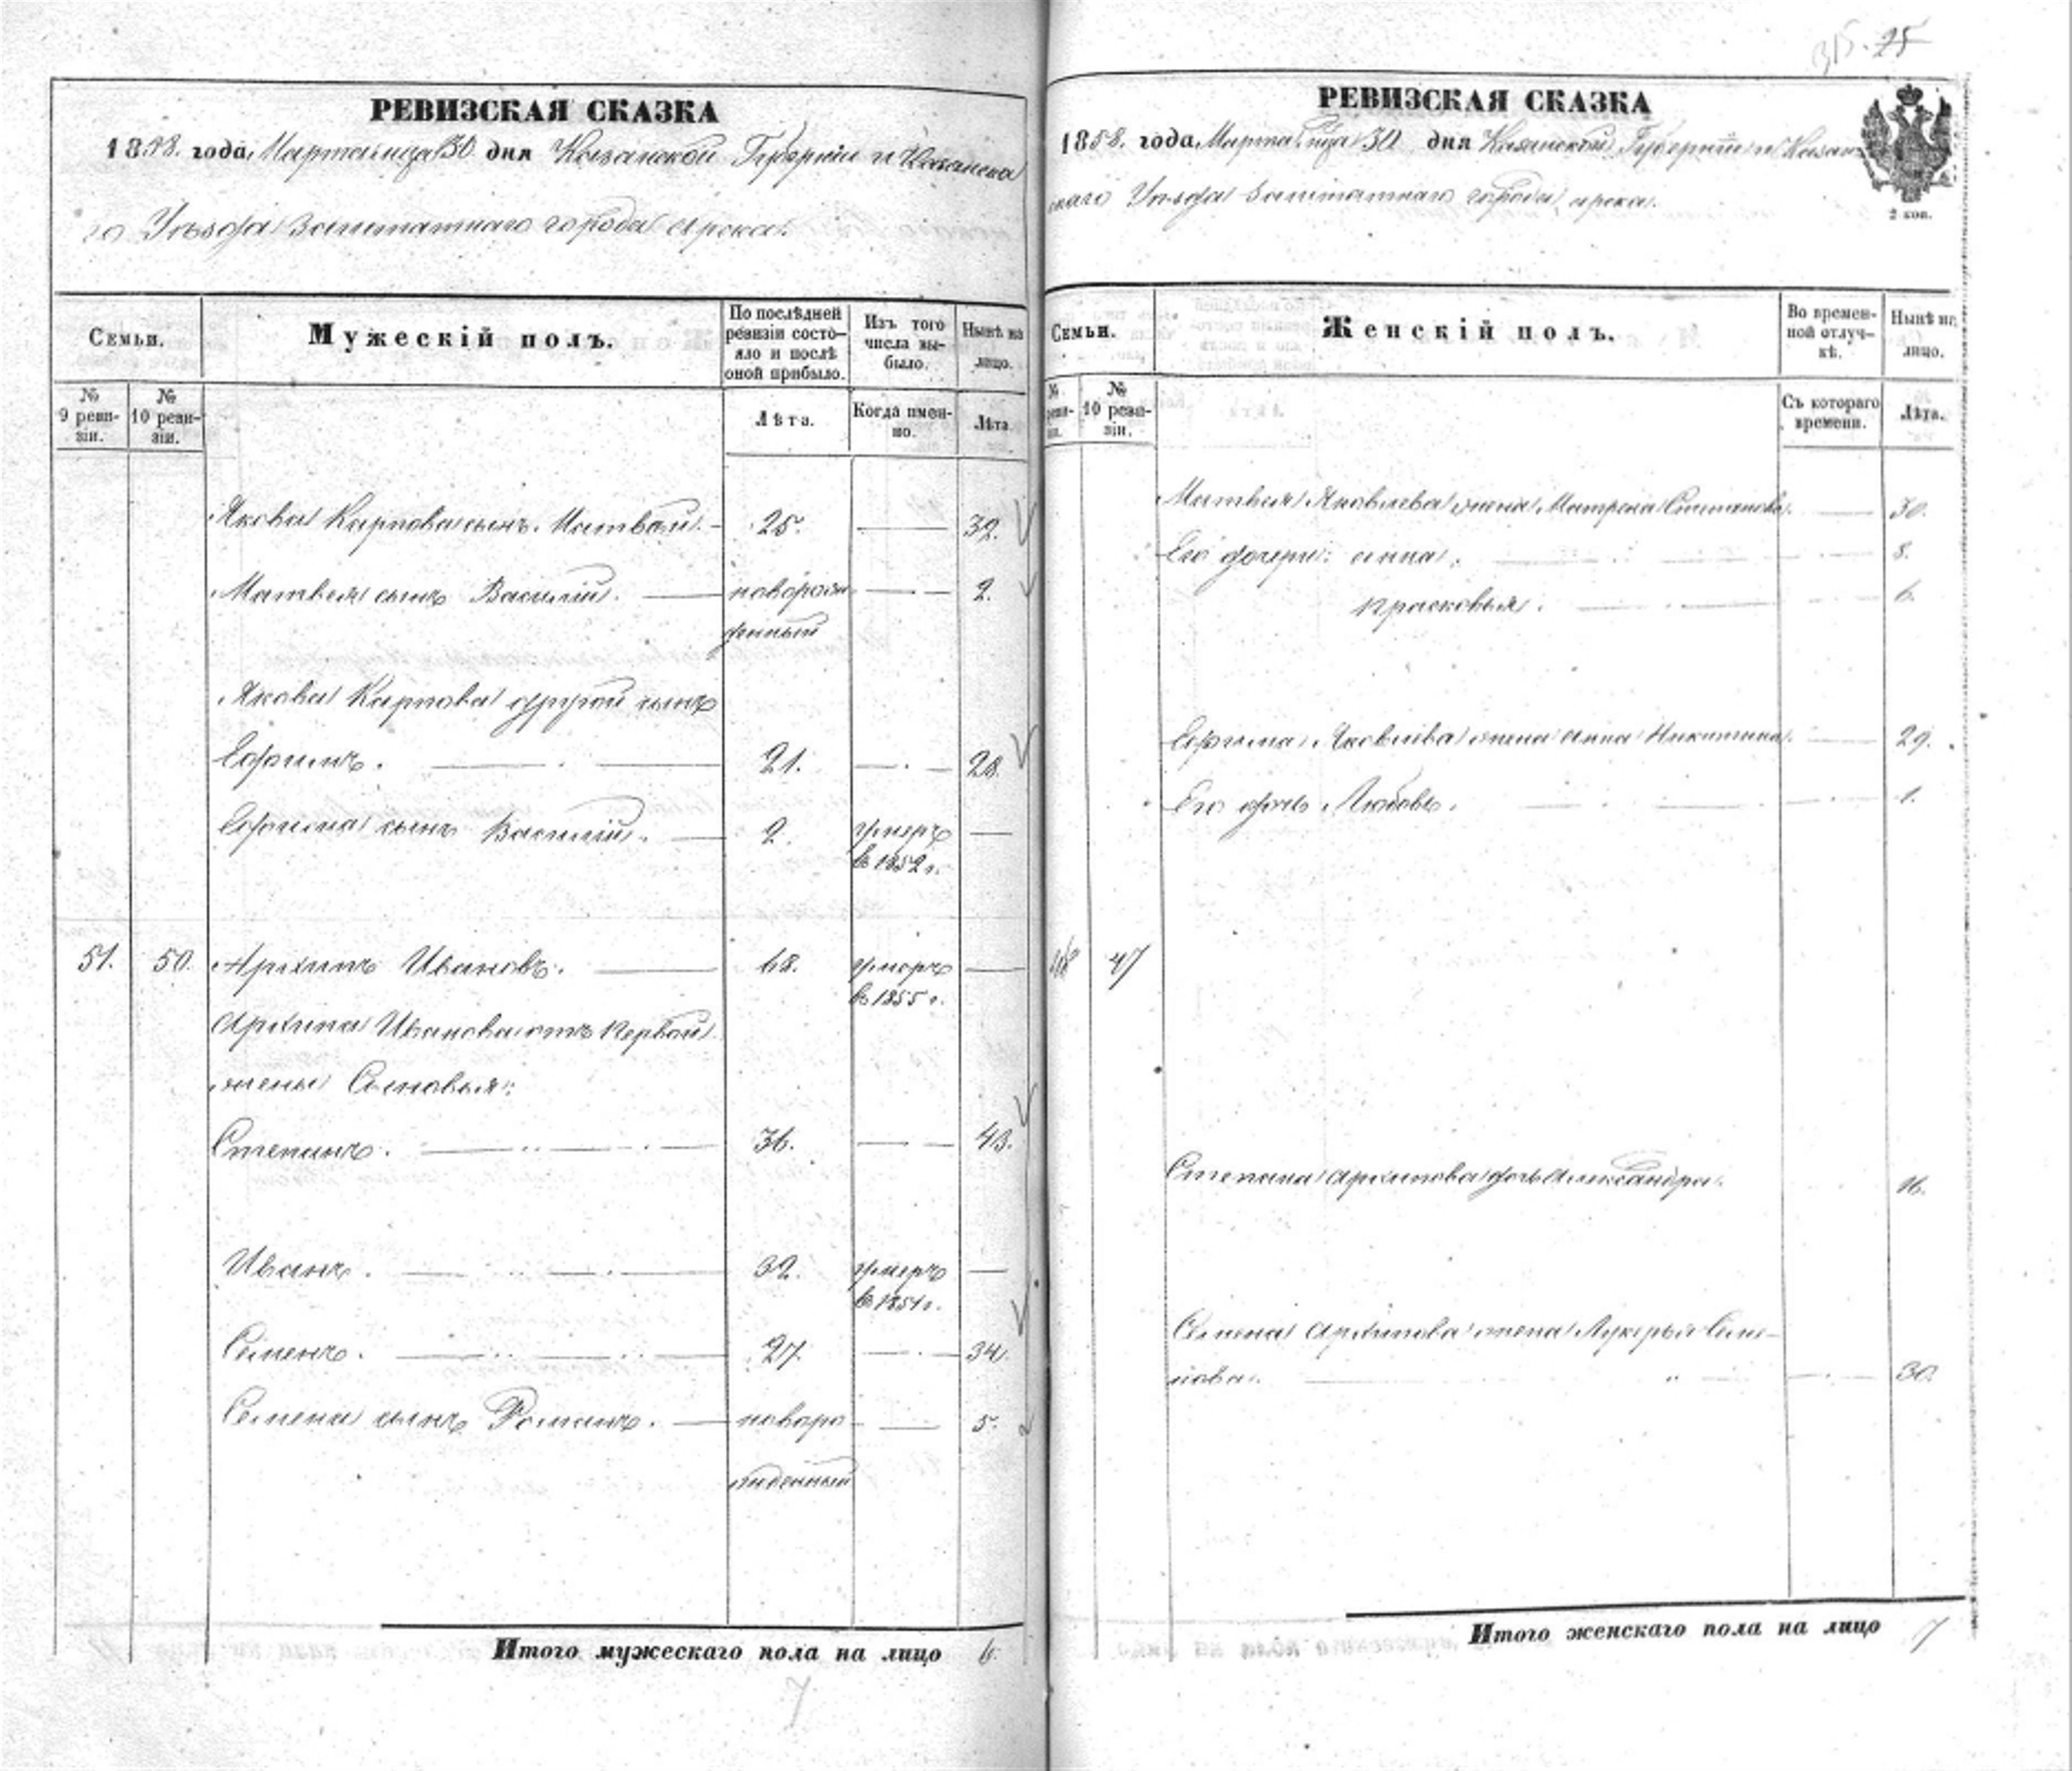 РЕВИЗСКАЯ СКАЗКА
1858. года, Марта мца 30 дня Казанской Губерніи и Казанска
го Уѣзда заштатнаго города Арска.
Семьи.
Мужескій полъ.
По послѣдней ревизіи состо-
яло и послѣ оной прибыло.
Изъ того числа вы-
было.
Нынѣ на лицо.
№ 9 реви-
зіи.
№ 10 реви-
зіи.
Лѣта.
Когда имен-
но.
Лѣта
Якова Карпова сынъ Матвей. 25. 32.
Матвея сынъ Василій. новорож 2.
денный
Якова Карпова другой сынъ
Ефимъ. 21. 28.
Ефима сынъ Василій. 2. умеръ
в 1852 г.
51. 50. Архипъ Ивановъ. 68. умеръ
в 1855 г.
Архипа Иванова отъ первой
жены Сыновья:
Степанъ. 36. 43.
Иванъ. 32. умеръ
в 1851 г.
Семенъ. 27. 34.
Семена сынъ Романъ. новоро 5.
жденный
Итого мужескаго пола на лицо 6.
7
25
РЕВИЗСКАЯ СКАЗКА
1858. года Марта мца 30 дня Казанской Губерніи и Казан
скаго Уѣзда заштатнаго города Арска.
2 коп.
Семьи.
Женскій полъ.
Во времен-
ной отлуч-
кѣ.
Нынѣ на лицо.
№ реви-
зіи.
№ 10 реви-
зіи.
Съ котораго времени.
Лѣта.
Матвея Яковлева жена Матрена Степанова. 30.
Его дочери: Анна. 8.
Прасковья. 6.
Ефима Яковлева жена Анна Никитина. 29.
Его дочь Любовь. 1.
47
Степана Архипова дочь Александра. 16.
Семена Архипова жена Лукерья Семе-
нова. 30.
Итого женскаго пола на лицо 7